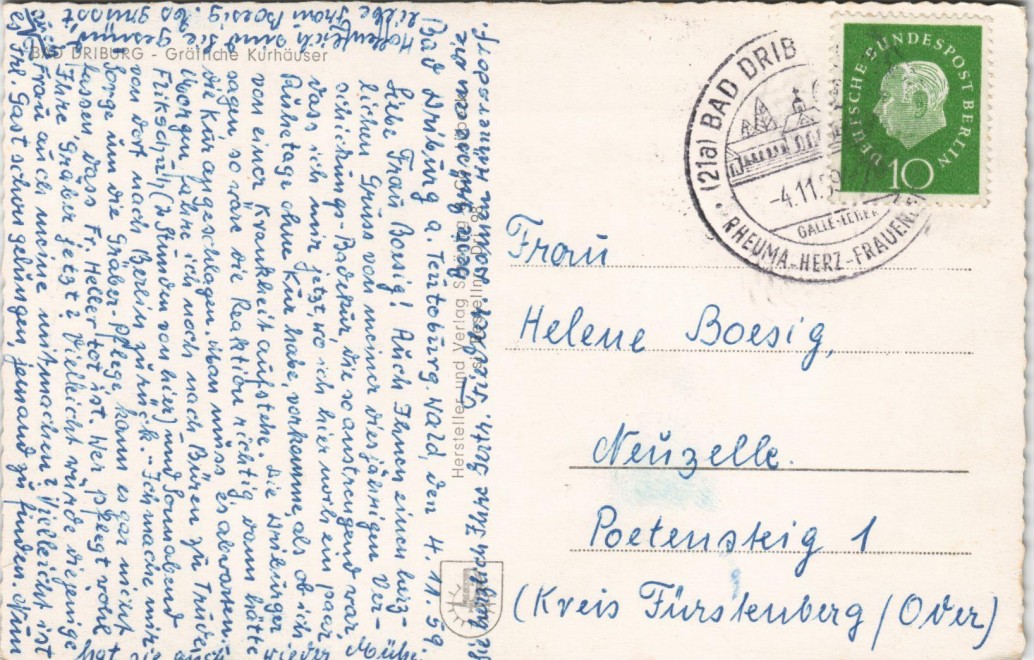 BAD DRIBURG - Gräfliche Kurhäuser
Bad Driburg a. Teutoburg. Wald, den 4.11.59.
Liebe Frau Boesig! Auch Ihnen einen herz-
lichen Gruss von meiner diesjährigen Ver-
schickungs-Badekur, die so anstrengend war,
dass ich mir jetzt, wo ich hier noch ein paar
Ruhetage ohne Kur habe, vorkomme, als ob ich
von einer Krankheit aufstehe. Die Driburger
sagen, so wäre die Reaktion richtig, dann hätte
die Kur angeschlagen. Man muss es abwarten.
Morgen fahre ich noch nach Büren zu Trudel
(2 Stunden von hier) und Sonnabend
von dort nach Berlin zurück. - Ich mache mir
Sorge um die Gräber-Pflege, kann es gar nicht
fassen, dass Fr. Heller tot ist. Wer pflegt wohl
Ihre Gräber jetzt? Vielleicht würde diejenige
Frau auch meine mitmachen? Vielleicht ist
es Ihl. Gast schon gelungen, jemand zu finden, dann
hat sie auch wieder Mühe
Hoffentlich sind Sie gesund
liebe Frau Boesig. Es grüsst
Hersteller und Verlag
(21a) BAD DRIB
-4.11.59
GALLE-LEBER
RHEUMA-HERZ-FRAUEN
DEUTSCHE BUNDESPOST BERLIN
10
Frau
Helene Boesig,
Neuzelle.
Poetensteig 1
(Kreis Fürstenberg/Oder)